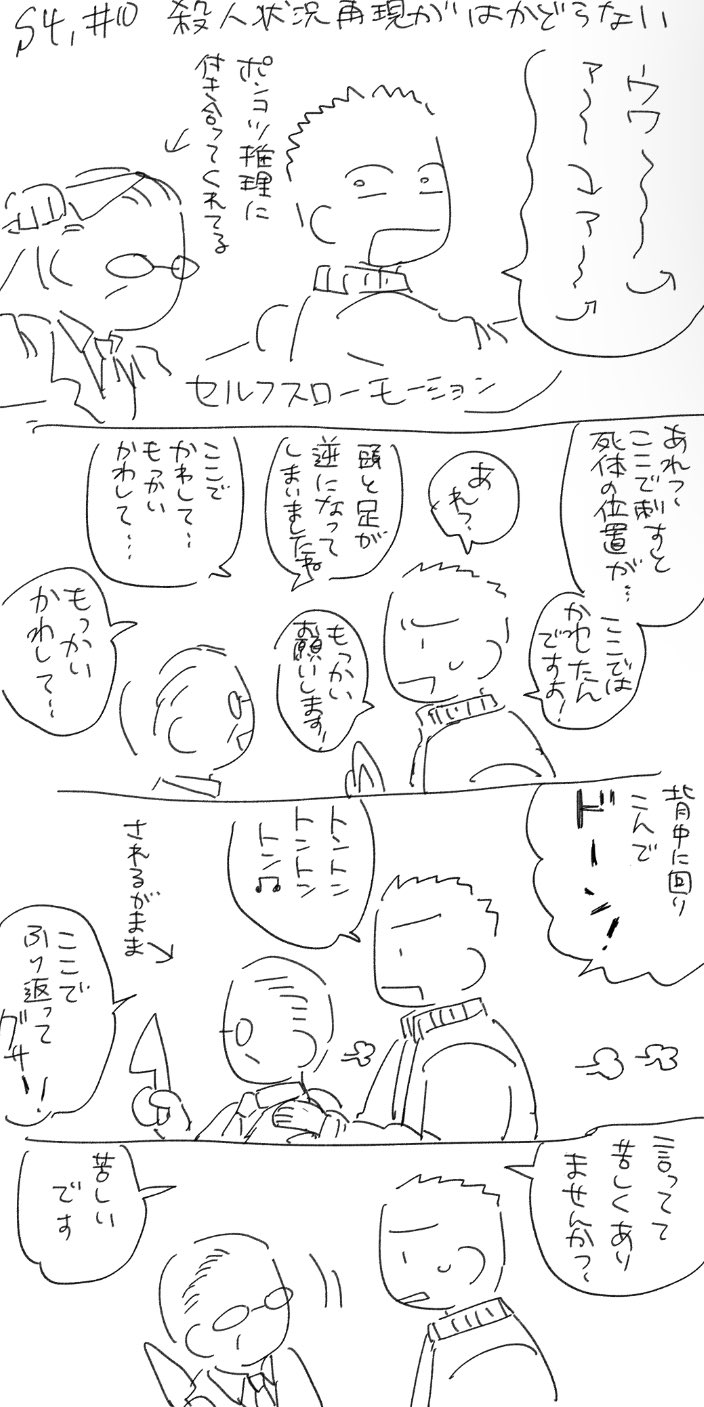 S4,#10 殺人状況再現がはかどらない
ウワ〜〜〜
ァ〜〜ァ〜〜
ポンコツ推理に
付き合ってくれてる
セルフスローモーション
あれっ、
ここで刺すと
死体の位置が…
ここでは
かわしたん
ですよ!
あ
れっ?
頭と足が
逆になって
しまいましたね
もっかい
お願いします!
ここで
かわして…
もっかい
かわして…
もっかい
かわして…
背中に回り
こんで
ドーン!
トントン
トントン
トン♫
されるがまま
ここで
ふり返って
グサー!
言ってて
苦しくあり
ませんか?
苦しい
です